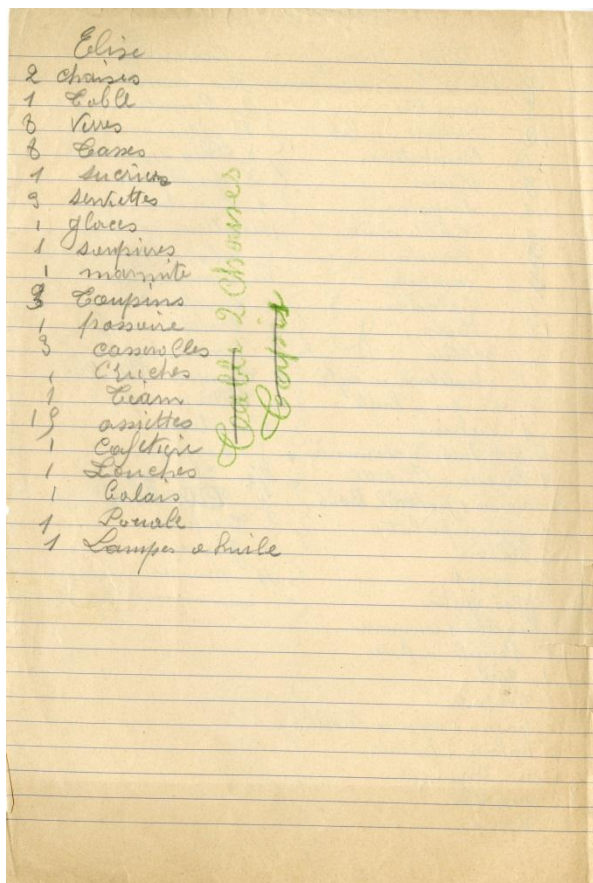 Elise
2 chaises
1 table
8 Verres
8 Tasses
1 sucriers
9 serviettes
1 glaces
1 soupires
1 marmite
3 Toupins
1 passoire
3 casserolles
1 Cruches
1 Tiam
15 assiettes
1 Cafetier
1 Louches
1 balais
1 Pouale
1 Lampes a huile
table 2 Chaises
tapis